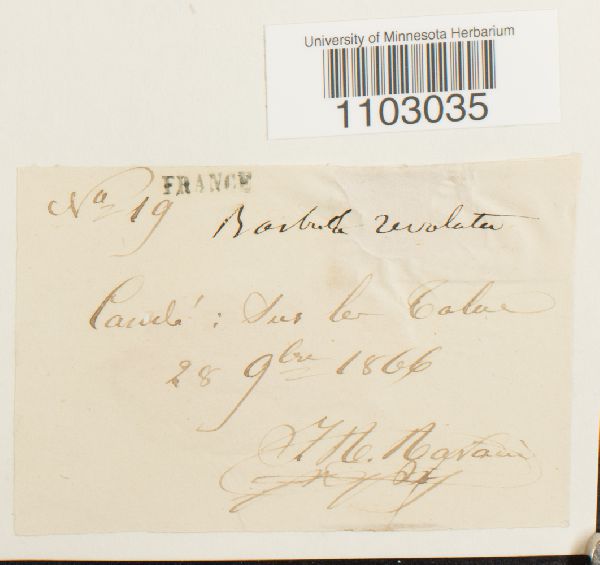 University of Minnesota Herbarium
1103035
FRANCE
No 19 Barbula revoluta
Candé : Sur les Talus
28 9bre 1866